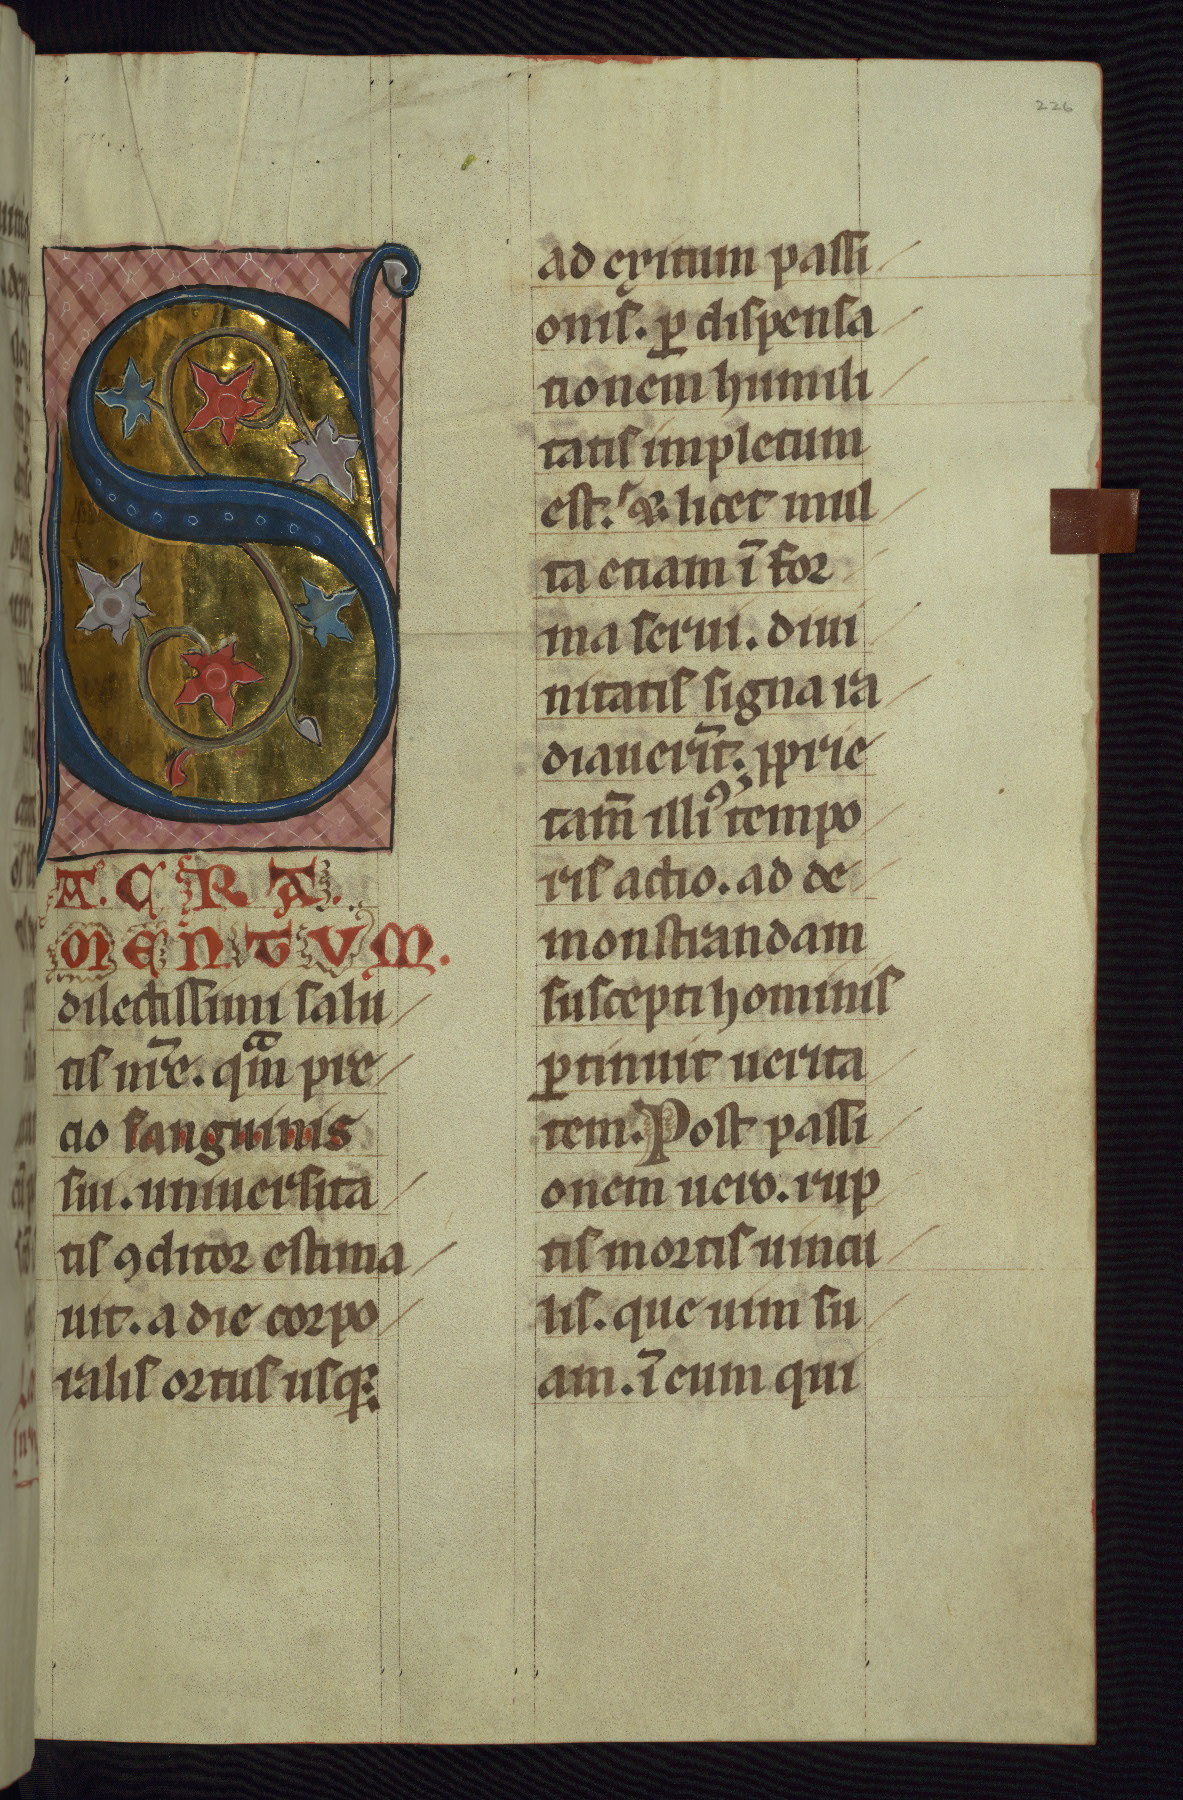 226
S
A.CRA.
MENTVM.
dilectissimi salu
tis nr̄e. qm̄ pre
cio sanguinis
sui. uniuersita
tis ꝯditor estima
uit. a die corpo
ralis ortus usqꝫ
ad exitum passi
onis. ꝑ dispensa
tionem humili
tatis impletum
est. ⁊ licet mul
ta etiam ī for
ma serui. diui
nitatis signa ra
diauerīt. ꝓprie
tam̄ illiꝰ tempo
ris actio. ad de
monstrandam
suscepti hominis
ꝑtinuit uerita
tem. Post passi
onem uero. rup
tis mortis uincu
lis. que uim su
am. ī eum qui